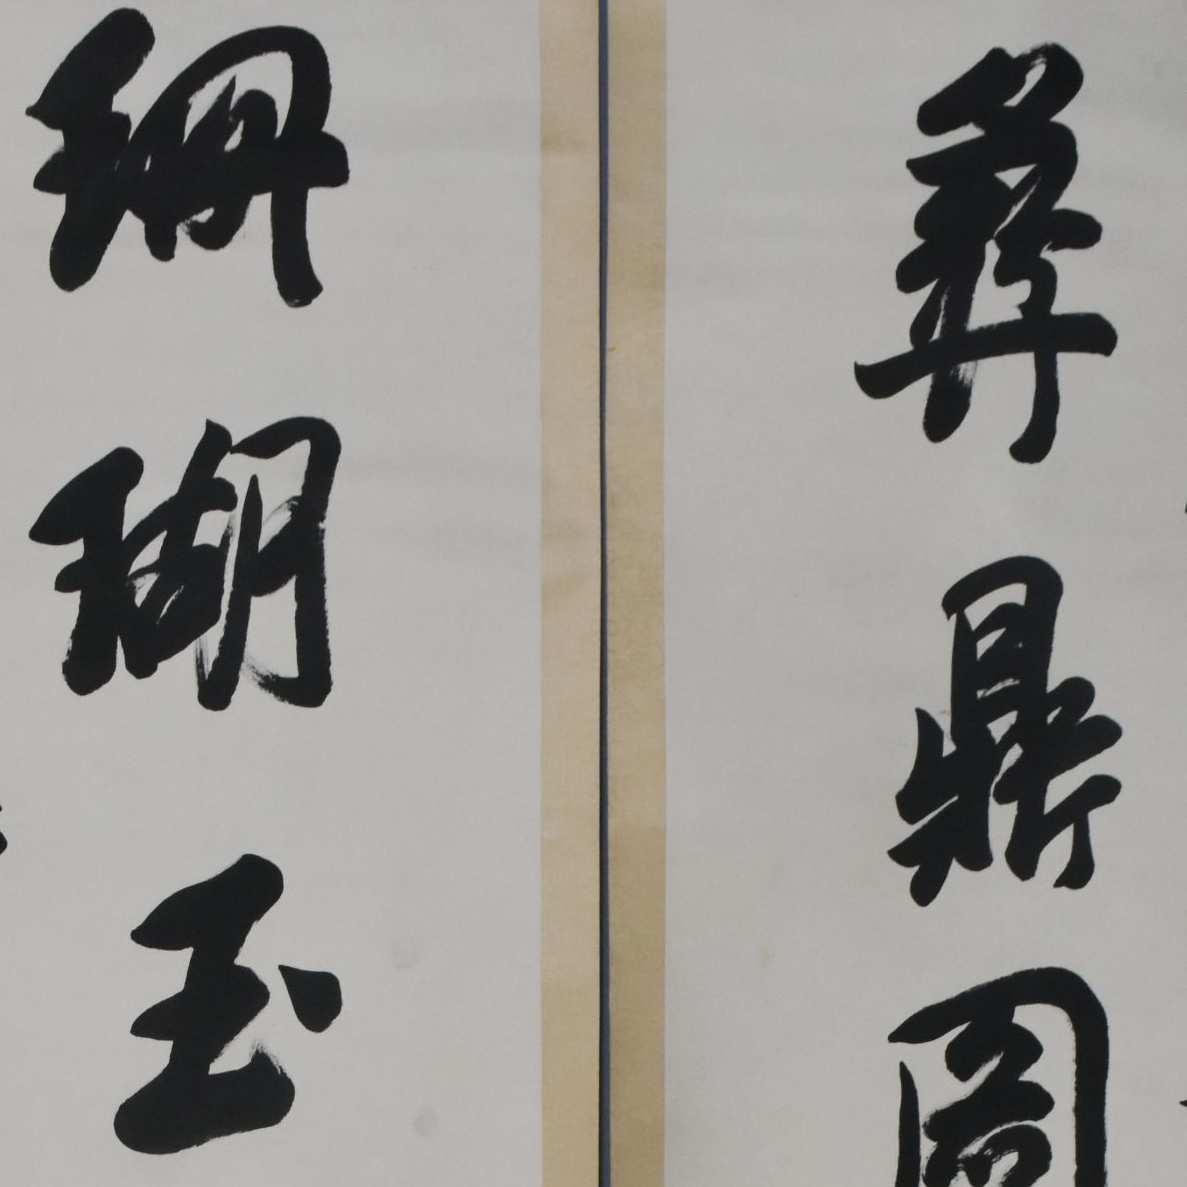 彝鼎圖
珊瑚玉